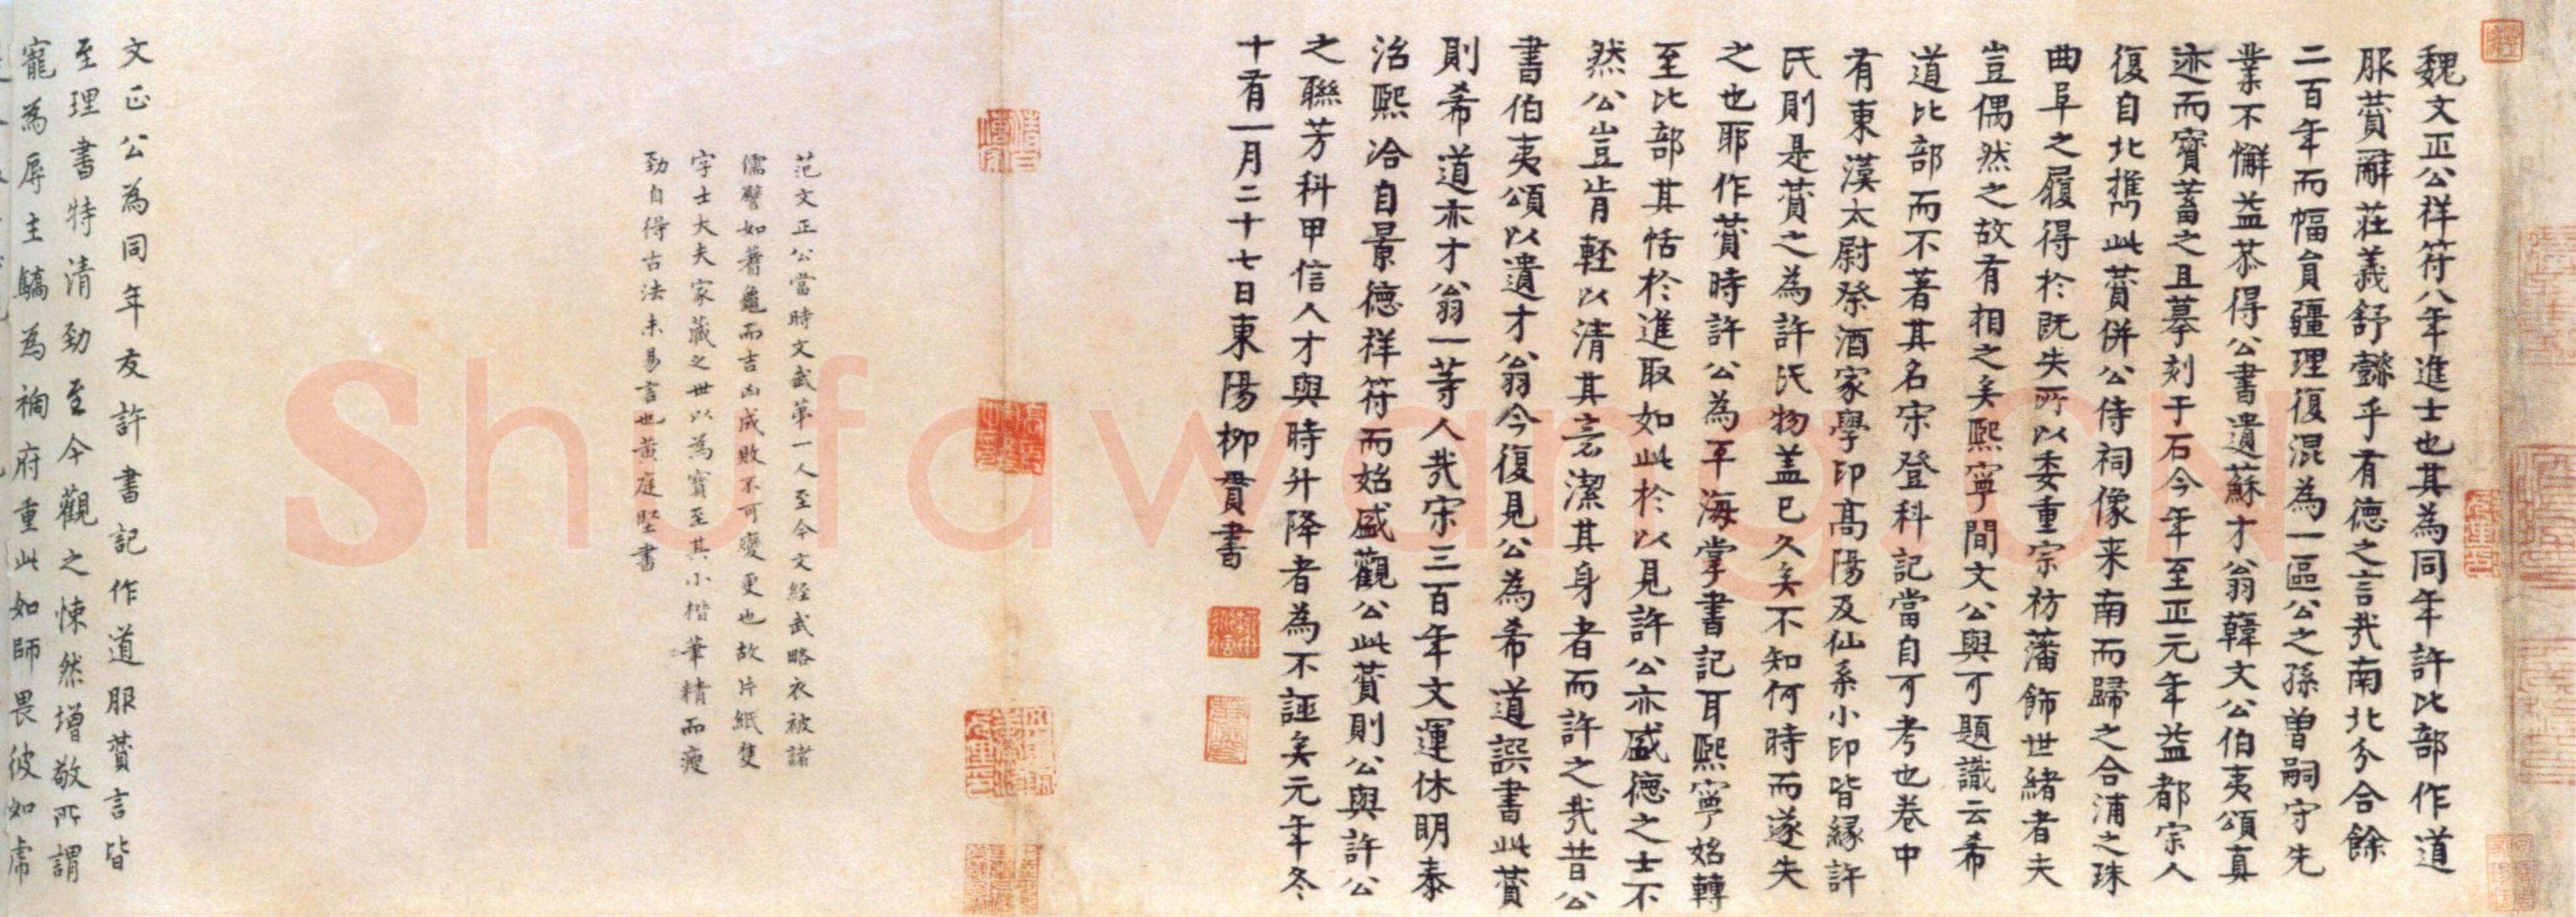 魏文正公祥符八年進士也其為同年許比部作道
服賛辭莊義舒懿乎有德之言哉南北分合餘
二百年而幅員疆理復混為一區公之孫曽嗣守先
業不懈益恭得公書遺蘇才翁韓文公伯夷頌真
迹而寳蓄之且摹刻于石今年至正元年益都宗人
復自北攜此賛併公侍祠像来南而歸之合浦之珠
曲阜之履得於既失所以委重宗祊藩飾世緒者夫
豈偶然之故有相之矣熙寧間文公與可題識云希
道比部而不著其名宋登科記當自可考也巻中
有東漢太尉祭酒家學印髙陽及仙系小印皆縁許
氏則是賛之為許氏物盖已久矣不知何時而遂失
之也耶作賛時許公為平海掌書記耳熙寧始轉
至比部其恬於進取如此於以見許公亦盛德之士不
然公豈肯輕以清其言潔其身者而許之哉昔公
書伯夷頌以遺才翁今復見公為希道譔書此賛
則希道亦才翁一等人哉宋三百年文運休明泰
治熙洽自景德祥符而始盛觀公此賛則公與許公
之聯芳科甲信人才與時升降者為不誣矣元年冬
十有一月二十七日東陽柳貫書
范文正公當時文武第一人至今文經武略衣被諸
儒譬如蓍龜而吉凶成敗不可變更也故片紙隻
字士大夫家藏之世以為寳至其小楷筆精而瘦
勁自得古法未易言也黄庭堅書
文正公為同年友許書記作道服賛言皆
至理書特清勁至今觀之悚然增敬所謂
寵為辱主驕為禍府重此如師畏彼如虎
Shufawang.CN